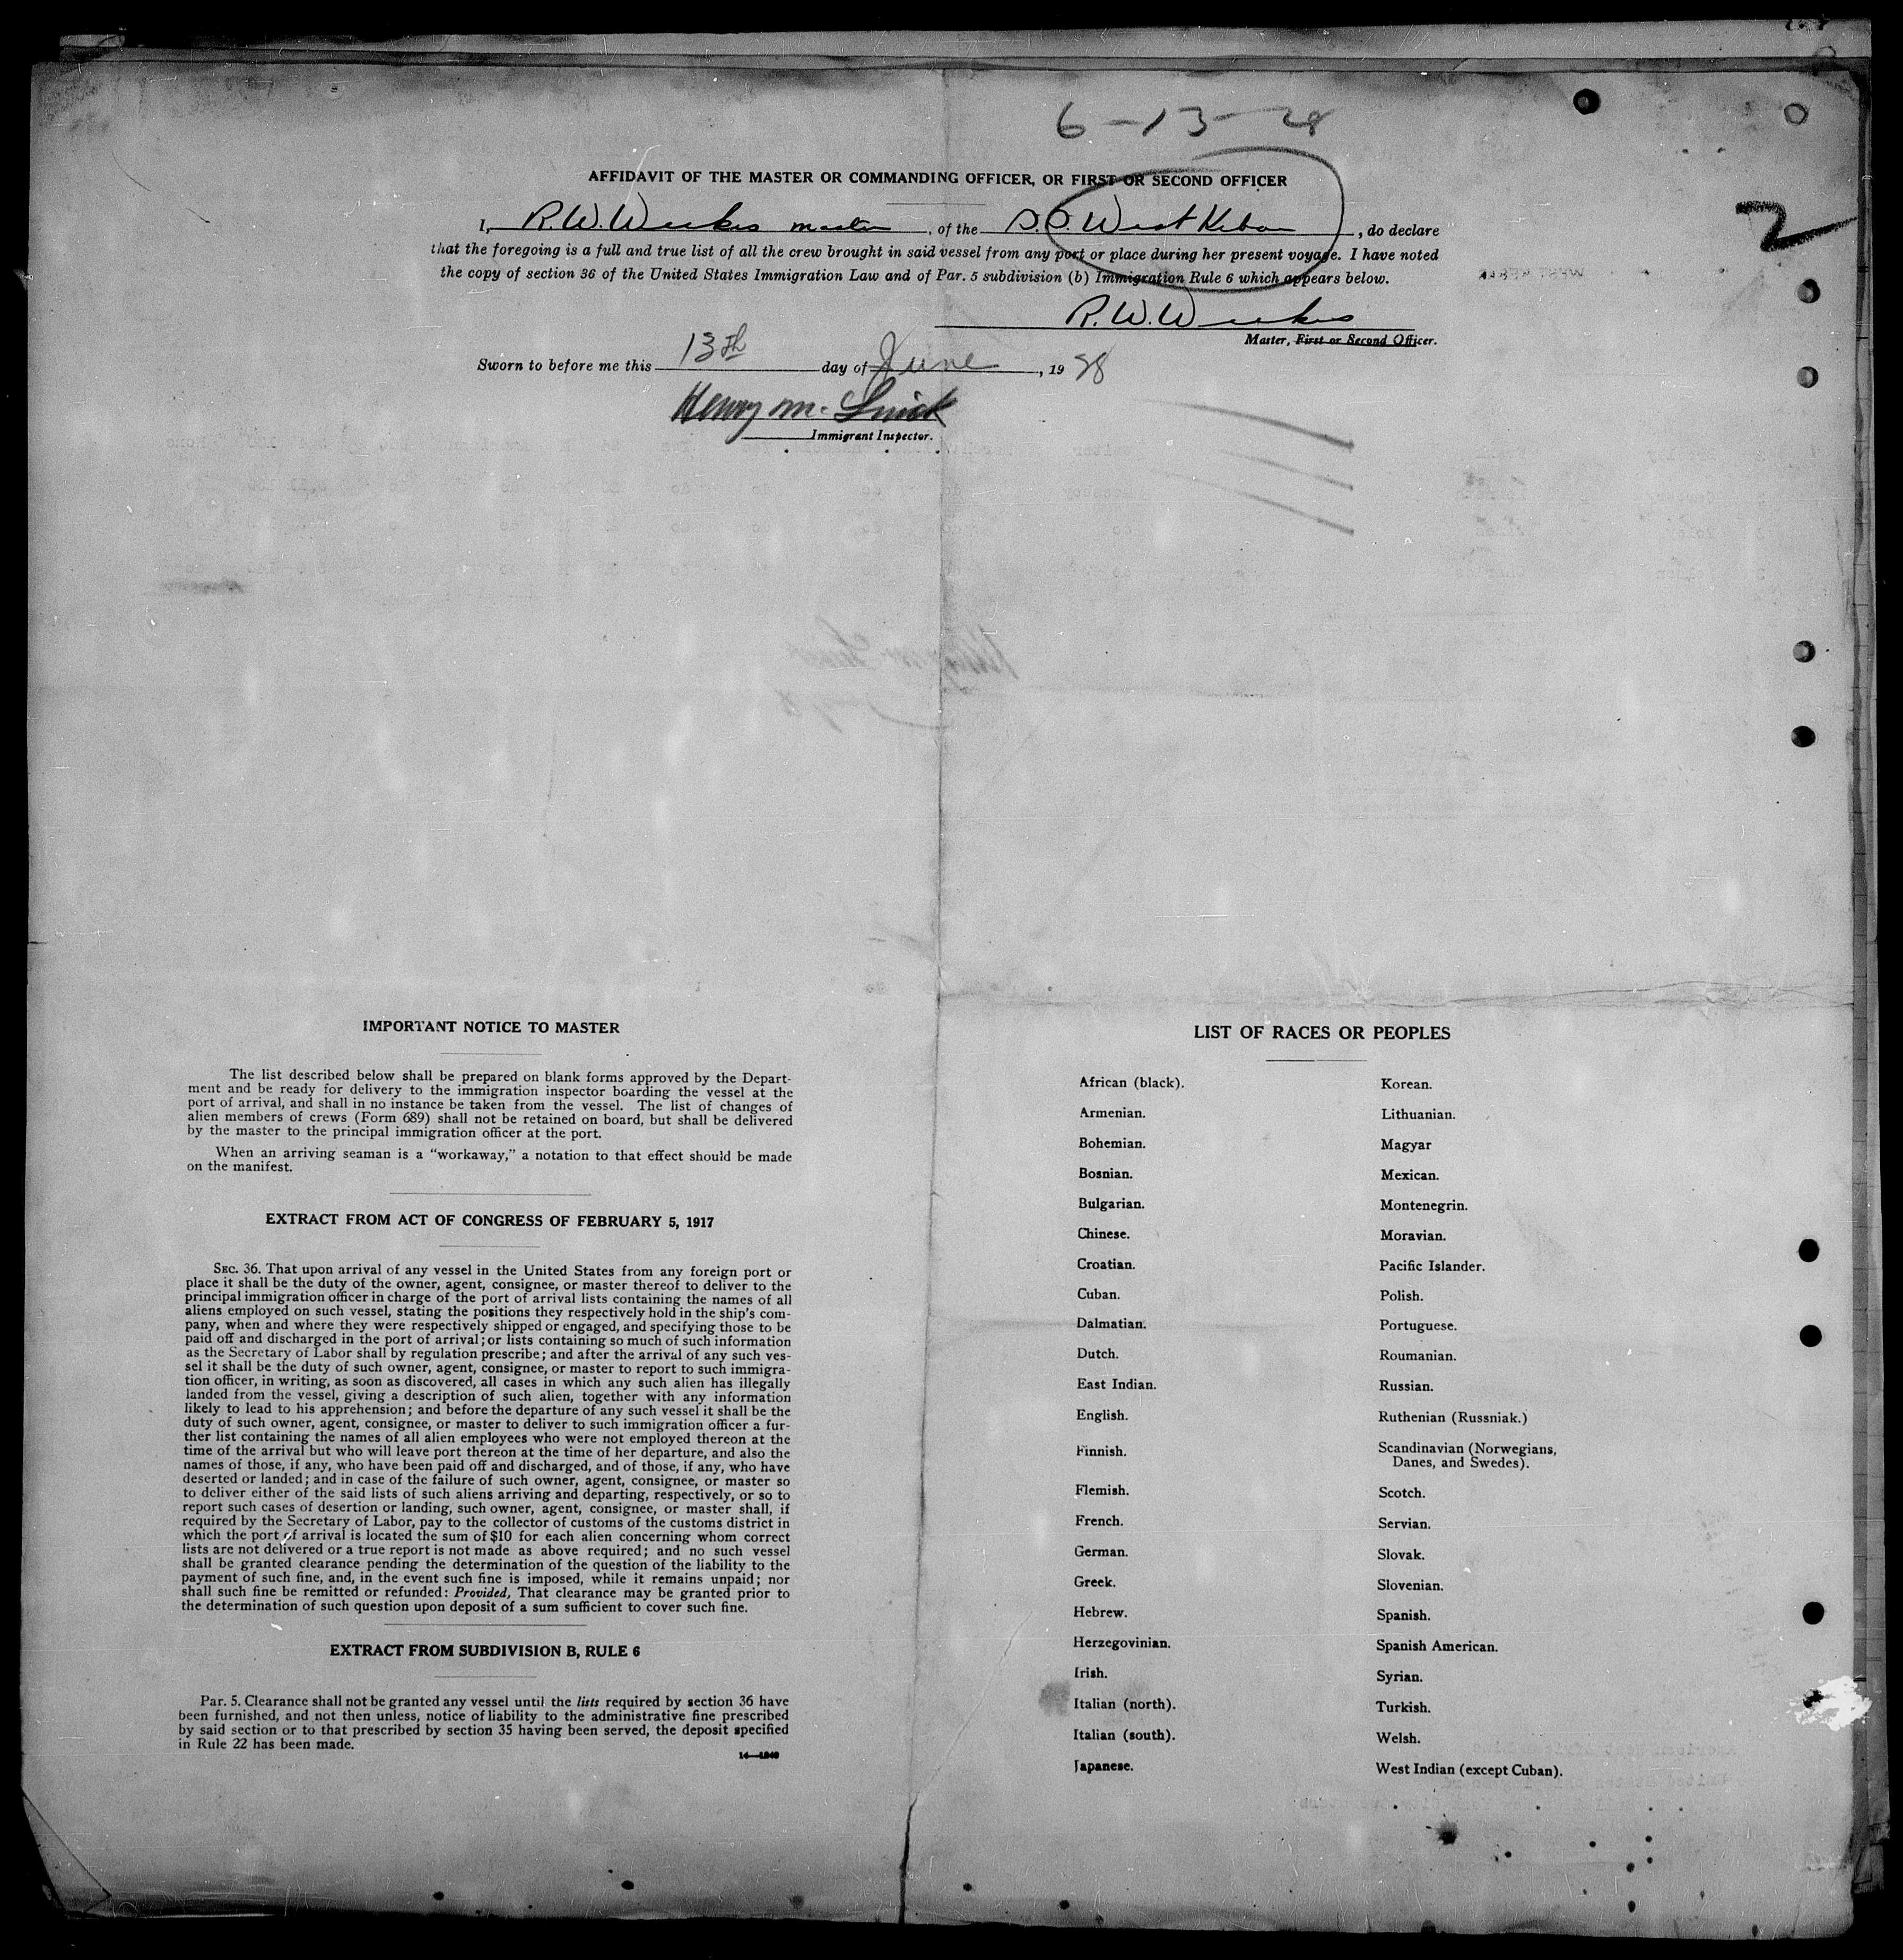 6-13-28
AFFIDAVIT OF THE MASTER OR COMMANDING OFFICER, OR FIRST OR SECOND OFFICER
I, R.W. Weekes master, of the S.S. West Keban, do declare
that the foregoing is a full and true list of all the crew brought in said vessel from any port or place during her present voyage. I have noted
the copy of section 36 of the United States Immigration Law and of Par. 5 subdivision (b) Immigration Rule 6 which appears below.
2
R.W. Weekes
Master, First or Second Officer.
Sworn to before me this 13th day of June, 1928
Henry M.
Immigrant Inspector.
IMPORTANT NOTICE TO MASTER
The list described below shall be prepared on blank forms approved by the Depart-
ment and be ready for delivery to the immigration inspector boarding the vessel at the
port of arrival, and shall in no instance be taken from the vessel. The list of changes of
alien members of crews (Form 689) shall not be retained on board, but shall be delivered
by the master to the principal immigration officer at the port.
When an arriving seaman is a "workaway," a notation to that effect should be made
on the manifest.
EXTRACT FROM ACT OF CONGRESS OF FEBRUARY 5, 1917
SEC. 36. That upon arrival of any vessel in the United States from any foreign port or
place it shall be the duty of the owner, agent, consignee, or master thereof to deliver to the
principal immigration officer in charge of the port of arrival lists containing the names of all
aliens employed on such vessel, stating the positions they respectively hold in the ship's com-
pany, when and where they were respectively shipped or engaged, and specifying those to be
paid off and discharged in the port of arrival; or lists containing so much of such information
as the Secretary of Labor shall by regulation prescribe; and after the arrival of any such ves-
sel it shall be the duty of such owner, agent, consignee, or master to report to such immigra-
tion officer, in writing, as soon as discovered, all cases in which any such alien has illegally
landed from the vessel, giving a description of such alien, together with any information
likely to lead to his apprehension; and before the departure of any such vessel it shall be the
duty of such owner, agent, consignee, or master to deliver to such immigration officer a fur-
ther list containing the names of all alien employees who were not employed thereon at the
time of the arrival but who will leave port thereon at the time of her departure, and also the
names of those, if any, who have been paid off and discharged, and of those, if any, who have
deserted or landed; and in case of the failure of such owner, agent, consignee, or master so
to deliver either of the said lists of such aliens arriving and departing, respectively, or so to
report such cases of desertion or landing, such owner, agent, consignee, or master shall, if
required by the Secretary of Labor, pay to the collector of customs of the customs district in
which the port of arrival is located the sum of $10 for each alien concerning whom correct
lists are not delivered or a true report is not made as above required; and no such vessel
shall be granted clearance pending the determination of the question of the liability to the
payment of such fine, and, in the event such fine is imposed, while it remains unpaid; nor
shall such fine be remitted or refunded: Provided, That clearance may be granted prior to
the determination of such question upon deposit of a sum sufficient to cover such fine.
EXTRACT FROM SUBDIVISION B, RULE 6
Par. 5. Clearance shall not be granted any vessel until the lists required by section 36 have
been furnished, and not then unless, notice of liability to the administrative fine prescribed
by said section or to that prescribed by section 35 having been served, the deposit specified
in Rule 22 has been made.
LIST OF RACES OR PEOPLES
African (black).
Armenian.
Bohemian.
Bosnian.
Bulgarian.
Chinese.
Croatian.
Cuban.
Dalmatian.
Dutch.
East Indian.
English.
Finnish.
Flemish.
French.
German.
Greek.
Hebrew.
Herzegovinian.
Irish.
Italian (north).
Italian (south).
Japanese.
Korean.
Lithuanian.
Magyar
Mexican.
Montenegrin.
Moravian.
Pacific Islander.
Polish.
Portuguese.
Roumanian.
Russian.
Ruthenian (Russniak.)
Scandinavian (Norwegians,
Danes, and Swedes).
Scotch.
Servian.
Slovak.
Slovenian.
Spanish.
Spanish American.
Syrian.
Turkish.
Welsh.
West Indian (except Cuban).